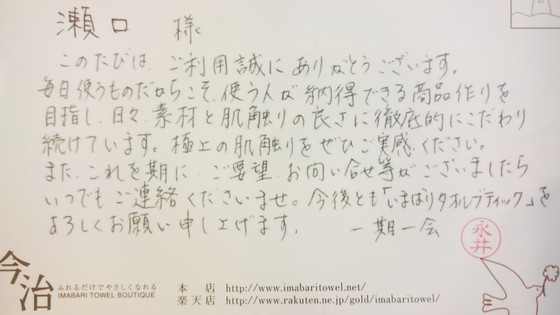 瀬口 様
このたびは、ご利用誠にありがとうございます。
毎日使うものだからこそ、使う人が納得できる商品作りを
目指し、日々、素材と肌触りの良さに徹底的にこだわり
続けています。極上の肌触りをぜひご実感ください。
また、これを期に、ご要望、お問い合せ等がございましたら
いつでもご連絡くださいませ。今後とも「いまばりタオルブティック」を
よろしくお願い申し上げます。 一期一会
永井
今治
ふれるだけでやさしくなれる
IMABARI TOWEL BOUTIQUE
本 店 http://www.imabaritowel.net/
楽天店 http://www.rakuten.ne.jp/gold/imabaritowel/